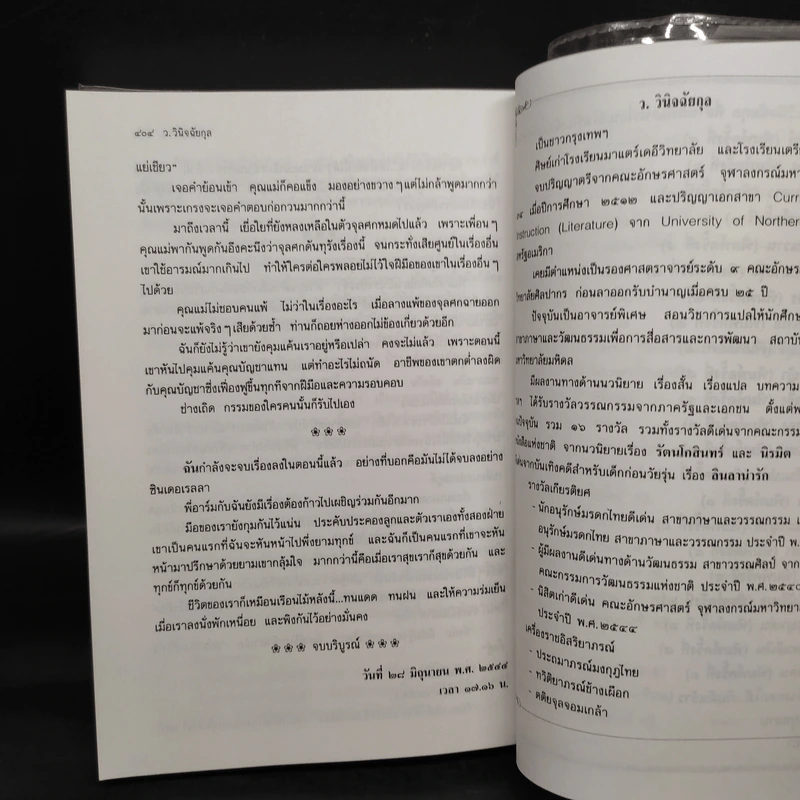 ๔๐๔ ว.วินิจฉัยกุล
แย่เชียว"
เจอคำย้อนเข้า คุณแม่ก็คอแข็ง มองอย่างขวางๆ แต่ไม่กล้าพูดมากกว่า
นั้นเพราะเกรงจะเจอคำตอบก่อกวนมากกว่านี้
มาถึงเวลานี้ เยื่อใยที่ยังหลงเหลือในตัวจุลศกหมดไปแล้ว เพราะเพื่อนๆ
คุณแม่พากันพูดกันอึงคะนึงว่าจุลศกดันทุรังเรื่องนี้ จนกระทั่งเสียศูนย์ในเรื่องอื่น
เขาใช้อารมณ์มากเกินไป ทำให้ใครต่อใครพลอยไม่ไว้ใจฝีมือของเขาในเรื่องอื่นๆ
ไปด้วย
คุณแม่ไม่ชอบคนแพ้ ไม่ว่าในเรื่องอะไร เมื่อลางแพ้ของจุลศกฉายออก
มาก่อนจะแพ้จริงๆ เสียด้วยซ้ำ ท่านก็ถอยห่างออกไม่ข้องเกี่ยวด้วยอีก
ฉันก็ยังไม่รู้ว่าเขายังคุมแค้นเราอยู่หรือเปล่า คงจะไม่แล้ว เพราะตอนนี้
เขาหันไปคุมแค้นคุณบัญชาแทน แต่ทำอะไรไม่ถนัด อาชีพของเขาตกต่ำลงผิด
กับคุณบัญชาซึ่งเฟื่องฟูขึ้นทุกทีจากฝีมือและความรอบคอบ
ช่างเถิด กรรมของใครคนนั้นก็รับไปเอง
❀ ❀ ❀
ฉันกำลังจะจบเรื่องลงในตอนนี้แล้ว อย่างที่บอกคือมันไม่ได้จบลงอย่าง
ซินเดอเรลลา
พี่อาร์มกับฉันยังมีเรื่องต้องก้าวไปเผชิญร่วมกันอีกมาก
มือของเรายังกุมกันไว้แน่น ประคับประคองลูกและตัวเราเองทั้งสองฝ่าย
เขาเป็นคนแรกที่ฉันจะหันหน้าไปพึ่งยามทุกข์ และฉันก็เป็นคนแรกที่เขาจะหัน
หน้ามาปรึกษาด้วยยามเขากลุ้มใจ มากกว่านี้คือเมื่อเราสุขเราก็สุขด้วยกัน และ
ทุกข์ก็ทุกข์ด้วยกัน
ชีวิตของเราก็เหมือนเรือนไม้หลังนี้...ทนแดด ทนฝน และให้ความร่มเย็น
เมื่อเราลงนั่งพักเหนื่อย และพิงกันไว้อย่างมั่นคง
❀ ❀ ❀ จบบริบูรณ์ ❀ ❀ ❀
วันที่ ๒๘ มิถุนายน พ.ศ. ๒๕๔๔
เวลา ๑๗.๑๖ น.
ว. วินิจฉัยกุล
เป็นชาวกรุงเทพฯ
ศิษย์เก่าโรงเรียนมาแตร์เดอีวิทยาลัย และโรงเรียนเตรี
จบปริญญาตรีจากคณะอักษรศาสตร์ จุฬาลงกรณ์มหา
เมื่อปีการศึกษา ๒๕๑๒ และปริญญาเอกสาขา Curri
struction (Literature) จาก University of Northern
หรัฐอเมริกา
เคยมีตำแหน่งเป็นรองศาสตราจารย์ระดับ ๙ คณะอักษร
วิทยาลัยศิลปากร ก่อนลาออกรับบำนาญเมื่อครบ ๒๕ ปี
ปัจจุบันเป็นอาจารย์พิเศษ สอนวิชาการแปลให้นักศึกษ
ภาษาและวัฒนธรรมเพื่อการสื่อสารและการพัฒนา สถาบัน
มหาวิทยาลัยมหิดล
มีผลงานทางด้านนวนิยาย เรื่องสั้น เรื่องแปล บทความ
ได้รับรางวัลวรรณกรรมจากภาครัฐและเอกชน ตั้งแต่พ
ปัจจุบัน รวม ๑๖ รางวัล รวมทั้งรางวัลดีเด่นจากคณะกรรม
สือแห่งชาติ จากนวนิยายเรื่อง รัตนโกสินทร์ และ นิรมิต
เด่นจากบันเทิงคดีสำหรับเด็กก่อนวัยรุ่น เรื่อง ลินลาน่ารัก
รางวัลเกียรติยศ
- นักอนุรักษ์มรดกไทยดีเด่น สาขาภาษาและวรรณกรรม
อนุรักษ์มรดกไทย สาขาภาษาและวรรณกรรม ประจำปี พ.
- ผู้มีผลงานดีเด่นทางด้านวัฒนธรรม สาขาวรรณศิลป์ จาก
คณะกรรมการวัฒนธรรมแห่งชาติ ประจำปี พ.ศ.๒๕๔๐
- นิสิตเก่าดีเด่น คณะอักษรศาสตร์ จุฬาลงกรณ์มหาวิทยา
ประจำปี พ.ศ.๒๕๔๔
เครื่องราชอิสริยาภรณ์
- ประถมาภรณ์มงกุฎไทย
- ทวีติยาภรณ์ช้างเผือก
- ตติยจุลจอมเกล้า